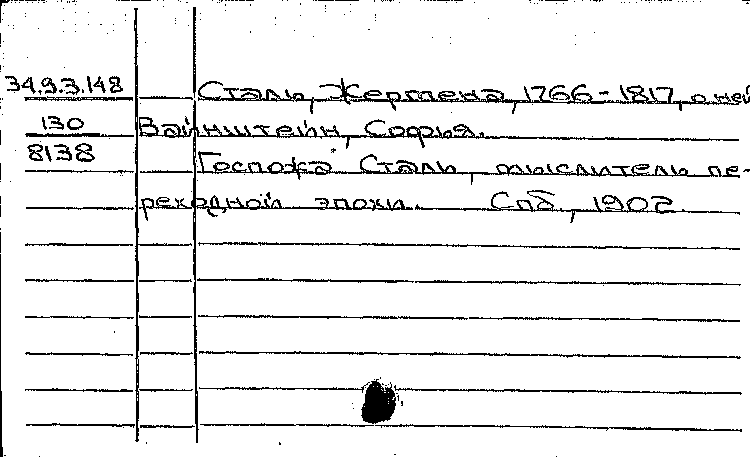 34.9.3.148 Сталь, Жермена, 1766-1817, о ней
130 Вайнштейн, Софья.
8138 Госпожа Сталь, мыслитель пе-
реходной эпохи. Спб., 1902.